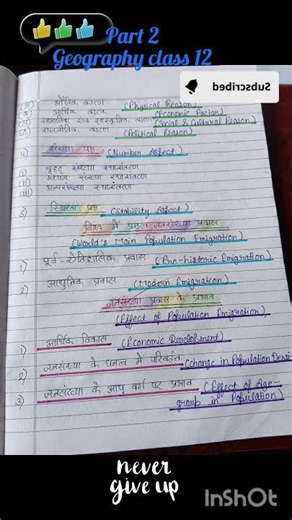 Part 2
Geography class 12
Subscribed
भौतिक कारण (Physical Reason)
आर्थिक कारक (Economic Factor)
(Social & Cultural Reason)
राजनीतिक कारण (Political Reason)
4) संख्या पक्ष (Number Aspect)
i) वृहद् संख्या स्थानांतरण
ii) मध्यम संख्या स्थानांतरण
iii) अल्पसंख्या स्थानांतरण
5) स्थिरता पक्ष (Stability Aspect)
विश्व में प्रमुख जनसंख्या प्रवास
(World's Main Population Emigration)
1) पूर्व-ऐतिहासिक प्रवास (Pre-historic Emigration)
ii) आधुनिक प्रवास (Modern Emigration)
जनसंख्या प्रवास के प्रभाव
(Effect of Population Emigration)
1) आर्थिक विकास (Economic Development)
2) जनसंख्या के घनत्व में परिवर्तन (Change in Population Densi
3) जनसंख्या के आयु वर्ग पर प्रभाव (Effect of Age-
group in Population)
never
give up
InShOt